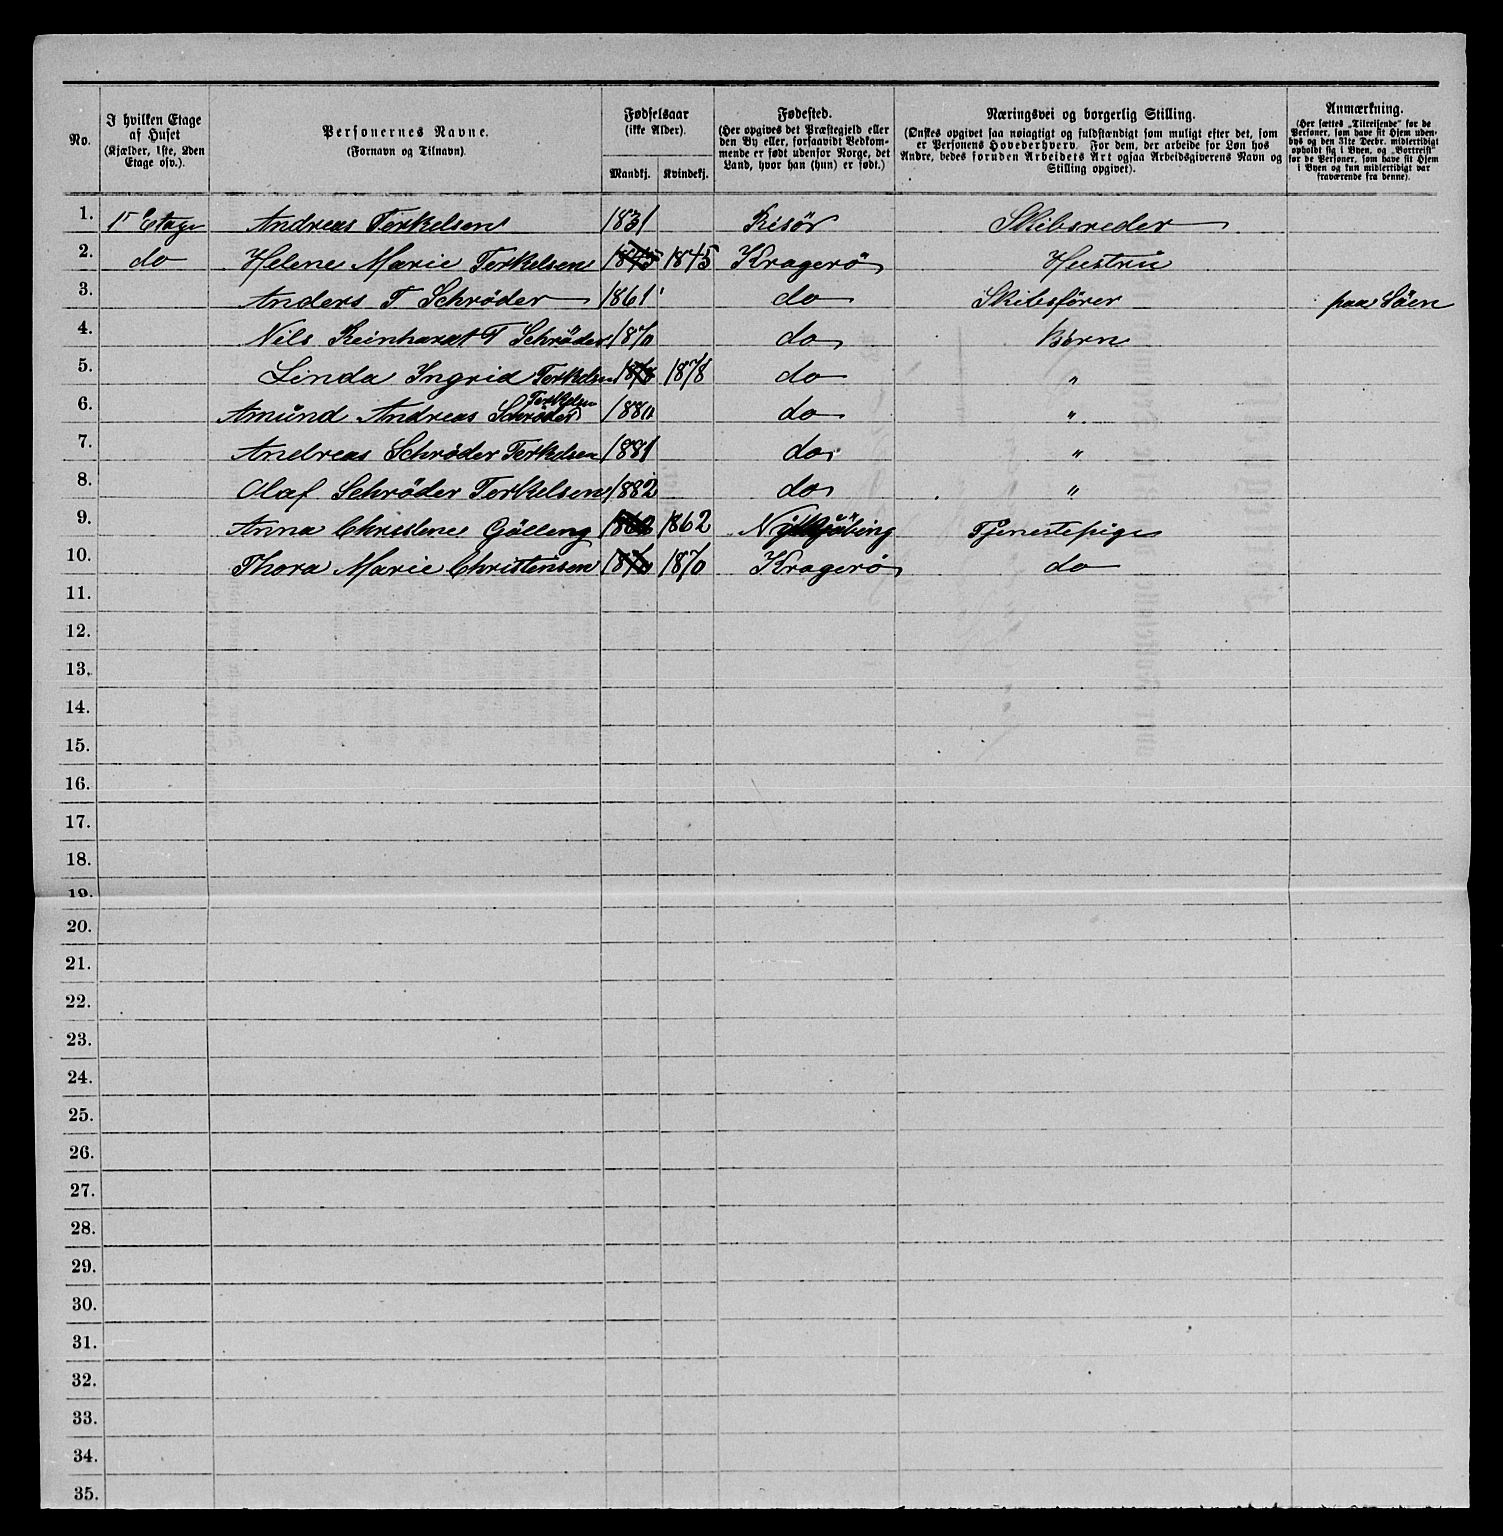 No.
I hvilken Etage
af Huset
(Kjælder, 1ste, 2den
Etage osv.).
Personernes Navne.
(Fornavn og Tilnavn)
Fødselsaar
(ikke Alder).
Mandkj. Kvindekj.
Fødested.
(Her opgives det Præstegjeld eller
den By eller, forsaavidt Vedkom-
mende er født udenfor Norge, det
Land, hvor han (hun) er født.)
Næringsvei og borgerlig Stilling.
(Ønskes opgivet saa nøiagtigt og fuldstændigt som muligt efter det, som
er Personens Hovederhverv. For dem, der arbeide for Løn hos
Andre, bedes foruden Arbeidets Art ogsaa Arbeidsgiverens Navn og
Stilling opgivet).
Anmærkning.
(Her sættes „Tilreisende" for de
Personer, som have sit Hjem uden-
bys og den 31te Decbr. midlertidigt
opholdt sig i Byen, og „Bortreist"
for de Personer, som have sit Hjem
i Byen og kun midlertidigt var
fraværende fra denne).
1. 1ste Etage Andreas Terkelsen 1831 Risör Skibsreder
2. do Helene Marie Terkelsen 1845 1845 Kragerö Hustru
3. Anders T Schrøder 1861 do Skibsfører paa Söen
4. Nils Reinhardt T Schrøder 1870 do Børn
5. Linda Ingrid Terkelsen 1878 1878 do "
6. Amund Andreas Schrøder Terkelsen 1880 do "
7. Andreas Schrøder Terkelsen 1881 do "
8. Olaf Schrøder Terkelsen 1882 do "
9. Anna Christene Gölleng 1862 1862 Nykjöbing Tjenestepige
10. Thora Marie Christensen 1870 1870 Kragerö do
11.
12.
13.
14.
15.
16.
17.
18.
19.
20.
21.
22.
23.
24.
25.
26.
27.
28.
29.
30.
31.
32.
33.
34.
35.